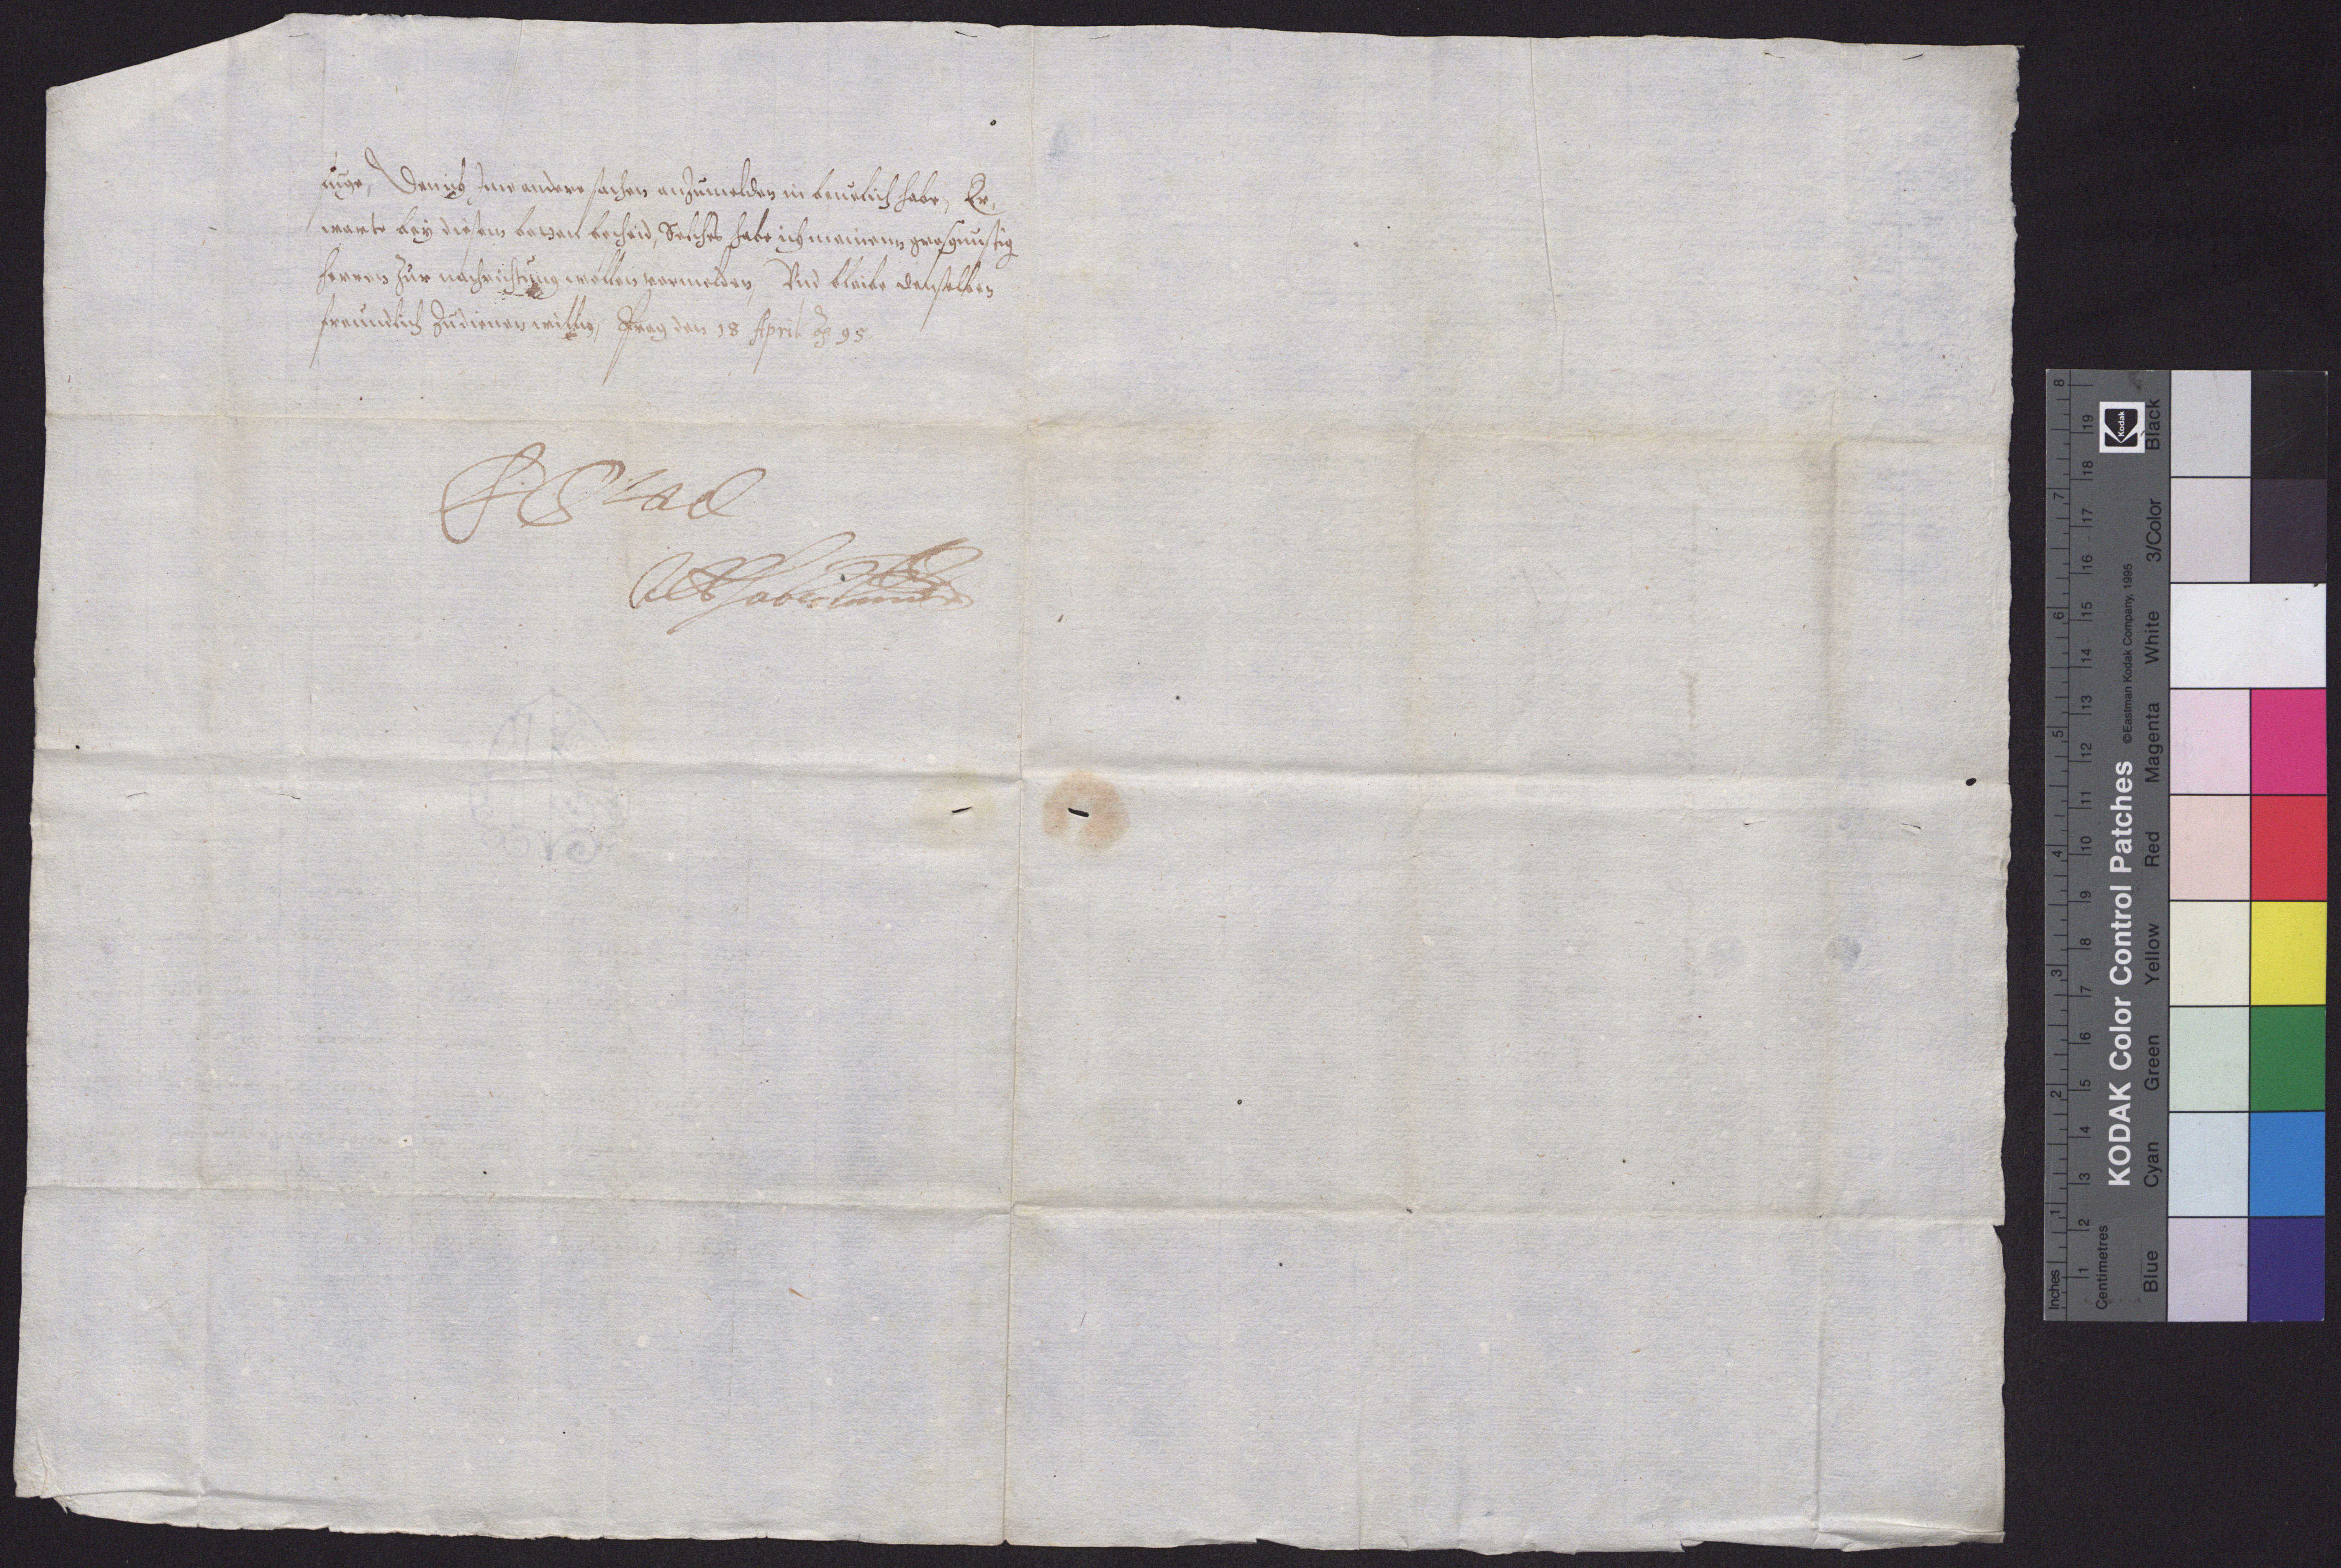 Den ich Ime andere sachen anzumelden in beuelich habe, Er,
warte bey diesem botten bescheid, Solches habe ich meinem grosgunstig
herren zur nachrichtung wollen vermelden, Vnd bleibe demselben
freundlich zudienen willig, Prag den 18 April 95
KODAK Color Control Patches
©Eastman Kodak Company, 1995
Kodak
Inches
1 2 3 4 5 6 7 8
Centimetres
1 2 3 4 5 6 7 8 9 10 11 12 13 14 15 16 17 18 19
Blue Cyan Green Yellow Red Magenta White 3/Color Black